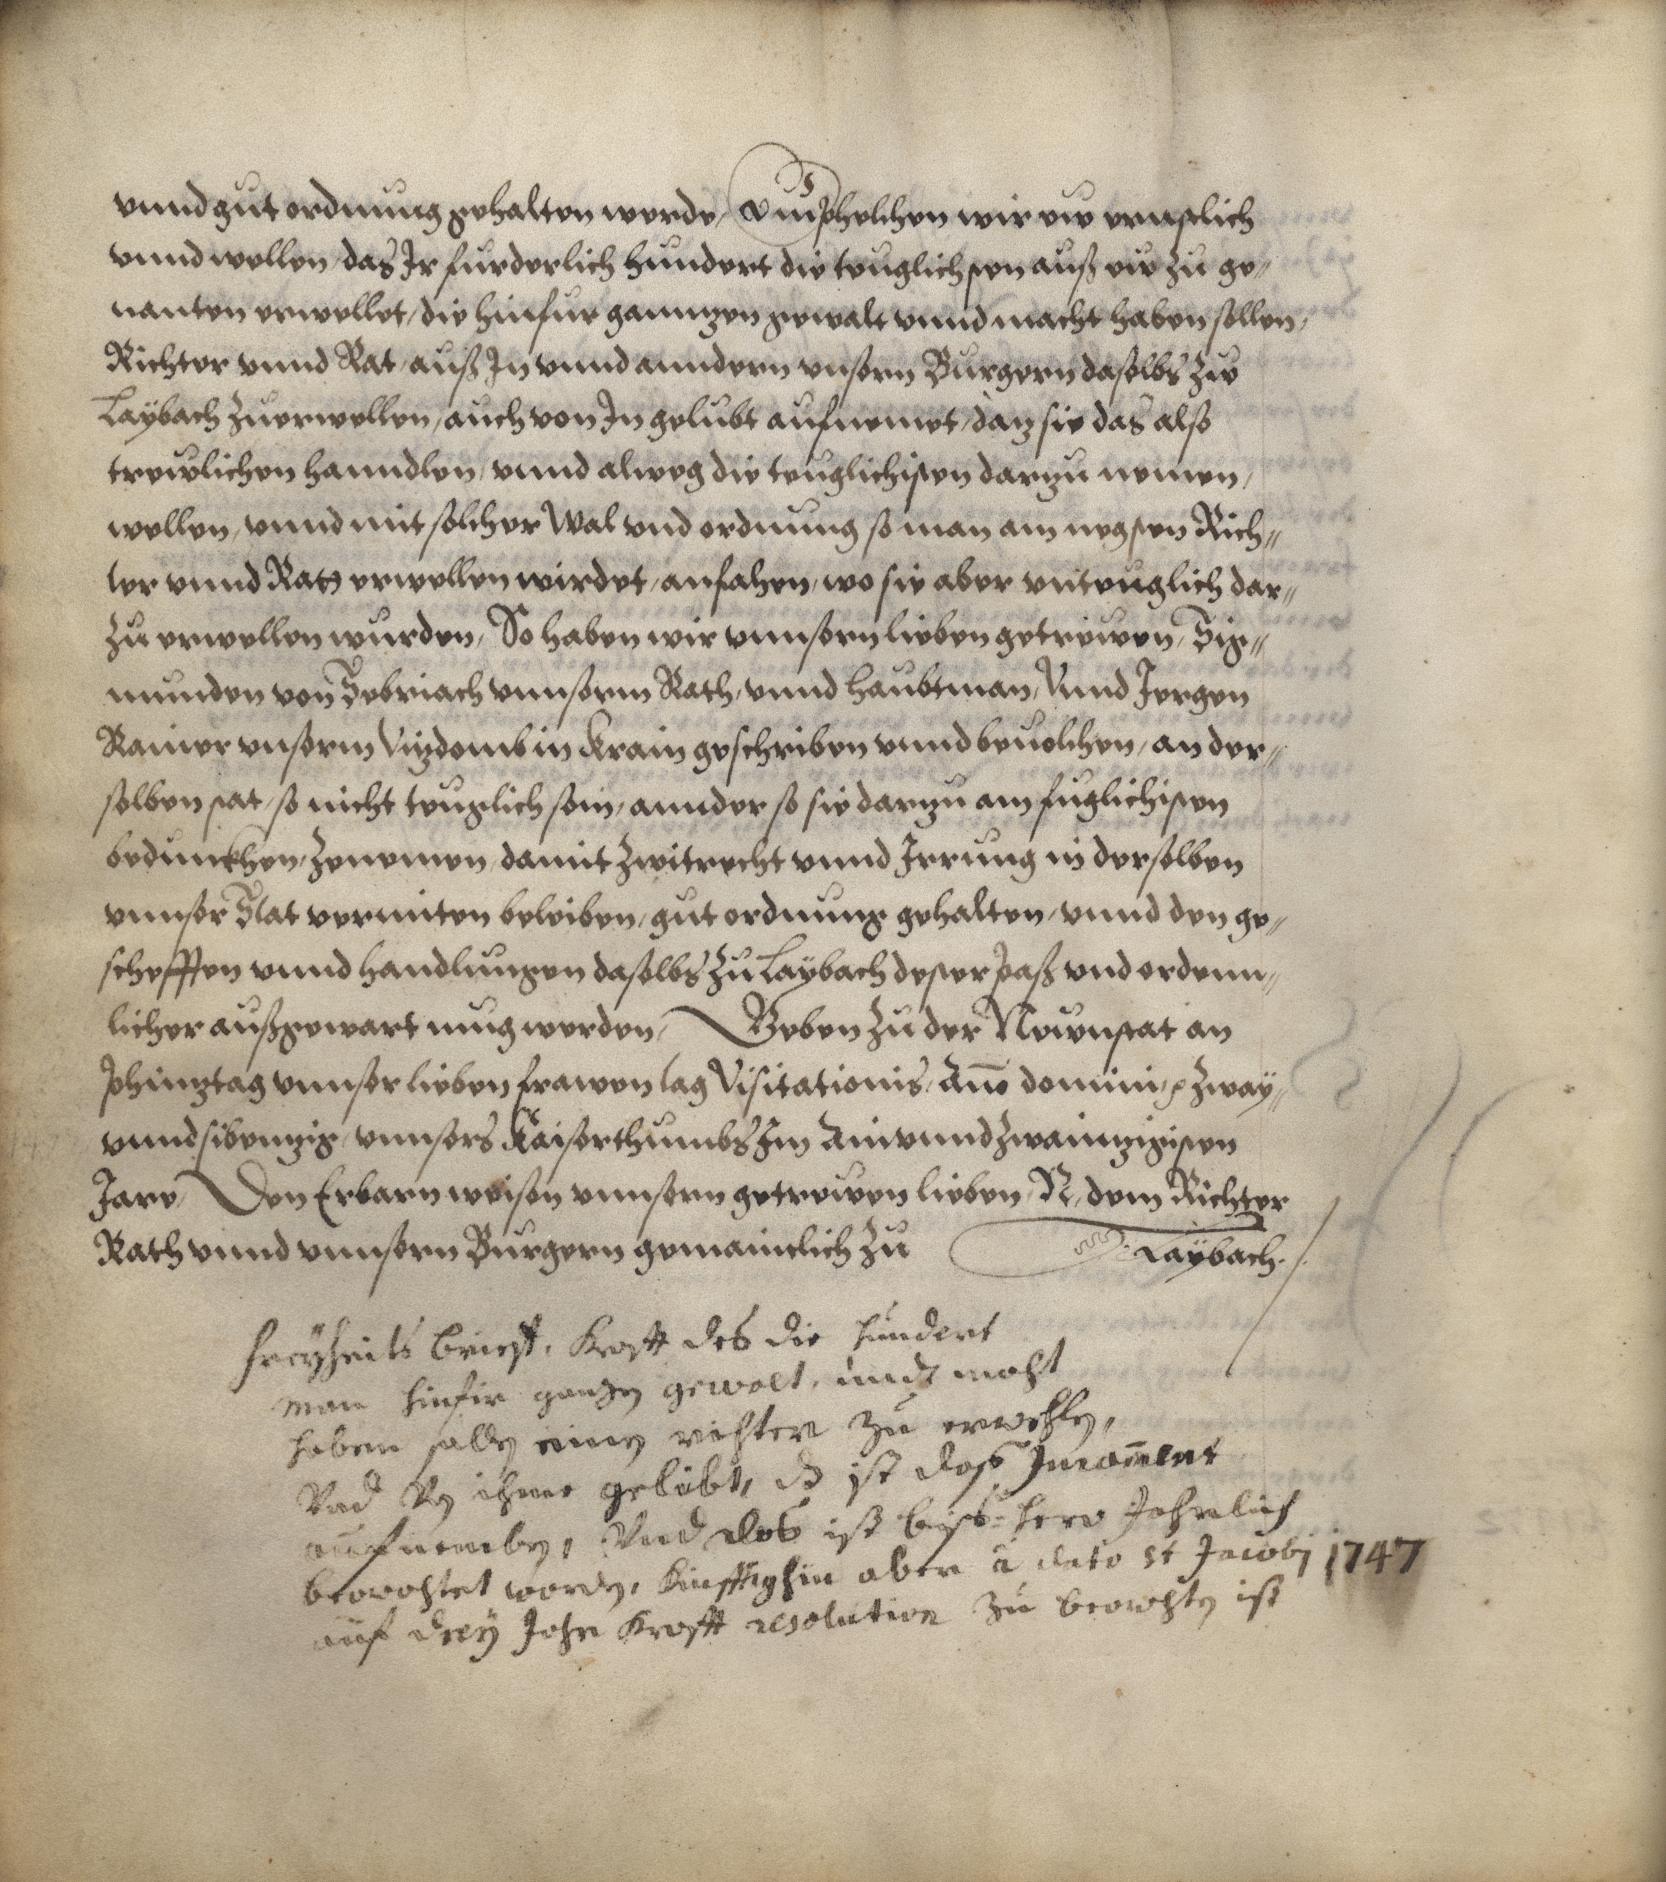 vnnd gut ordnung gehalten werde, Emphelhen wir euch ernstlich
vnnd wellen, das Ir furderlich hundert die teuglichsten auß euch zu ge-
nanten erwellet, die hinfur ganntzen gewalt vnnd macht haben sollen,
Richter vnnd Rat, auß In vnnd anndern vnsern Burgern daselbs zu
Laybach zuerwellen, auch von In gelubt aufnemet, daz sie das also
trewlichen hanndlen, vnnd alweg die teuglichisten darzu nemen,
wellen, vnnd mit solcher Wal vnd ordnung so man am negsten Rich-
ter vnnd Rath erwellen wirdet, anfahen, wo sie aber vnteuglich dar-
zu erwellen wurden, So haben wir vnnsern lieben getrewen, Sig-
munden von Sebriach vnnserm Rath, vnnd haubtman, Vnnd Jorgen
Rainer vnserm Vitzdomb in Krain geschriben vnnd beuolhen, an der-
selben stat, so nicht teuglich sein, annder so sie darzu am fuglichisten
bedunckhen, zenemen, damit zwitrecht vnnd Irrung in derselben
vnnser Stat vermiten beleiben, gut ordnung gehalten, vnnd den ge-
schefften vnnd handlungen daselbs zu Laybach dester paß vnd ordenn-
licher außgewart mug werden, Geben zu der Newnstat an
phinztag vnnser lieben frawen tag Visitationis, Anno domini, zway-
vnnd sibenzig, vnnsers Kaiserthumbs Im Ainvnndzwainzigisten
Jare, Den Erbarn weisen vnnsern getrewen lieben, N. dem Richter
Rath vnnd vnnsern Burgern gemainclich zu Laybach.
freyheits brieff, Krafft des die hundert
man hinfür ganzen gewalt, undt macht
haben sollen einen richter zu erwehlen,
Vnd von ihme gelübt, d ist das Jurament
aufnemben, Vnd des ist biss-hero Jahrlich
beobachtet worden, Künfftighin aber à dato st Jacobj 1747
auf drey Jahr Krafft resolution zu beobachten ist